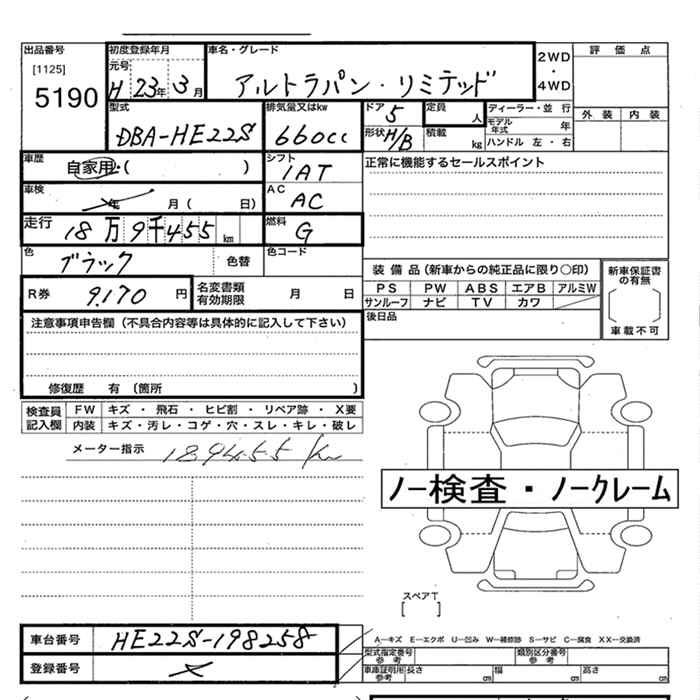 出品番号 初度登録年月 車名・グレード 評価点
[1125] 元号 2WD
5190 H 23年 3月 アルトラパン・リミテッド ・
4WD
型式 排気量又はkw ドア 5 定員 人 ディーラー・並行 外装 内装
DBA-HE22S 660cc 形状 H/B 積載 kg モデル年式 年
ハンドル 左・右
車歴 自家用・( ) シフト 1AT 正常に機能するセールスポイント
車検 年 月( 日) AC AC
走行 18万9千455km 燃料 G
色 ブラック 色替 色コード
装備品(新車からの純正品に限り〇印) 新車保証書の有無
R券 9,170円 名変書類有効期限 月 日 PS PW ABS エアB アルミW
サンルーフ ナビ TV カワ
注意事項申告欄(不具合内容等は具体的に記入して下さい) 後日品 車載不可
修復歴 有(箇所 )
検査員記入欄 FW キズ・飛石・ヒビ割・リペア跡・X要
内装 キズ・汚レ・コゲ・穴・スレ・キレ・破レ
メーター指示 189455km
ノー検査・ノークレーム
スペアT
[ ]
車台番号 HE22S-198258 A-キズ E-エクボ U-凹み W-補修跡 S-サビ C-腐食 XX-交換済
登録番号 型式指定番号 参考 類別区分番号 参考
車庫証明用 参考 長さ cm 幅 cm 高さ cm